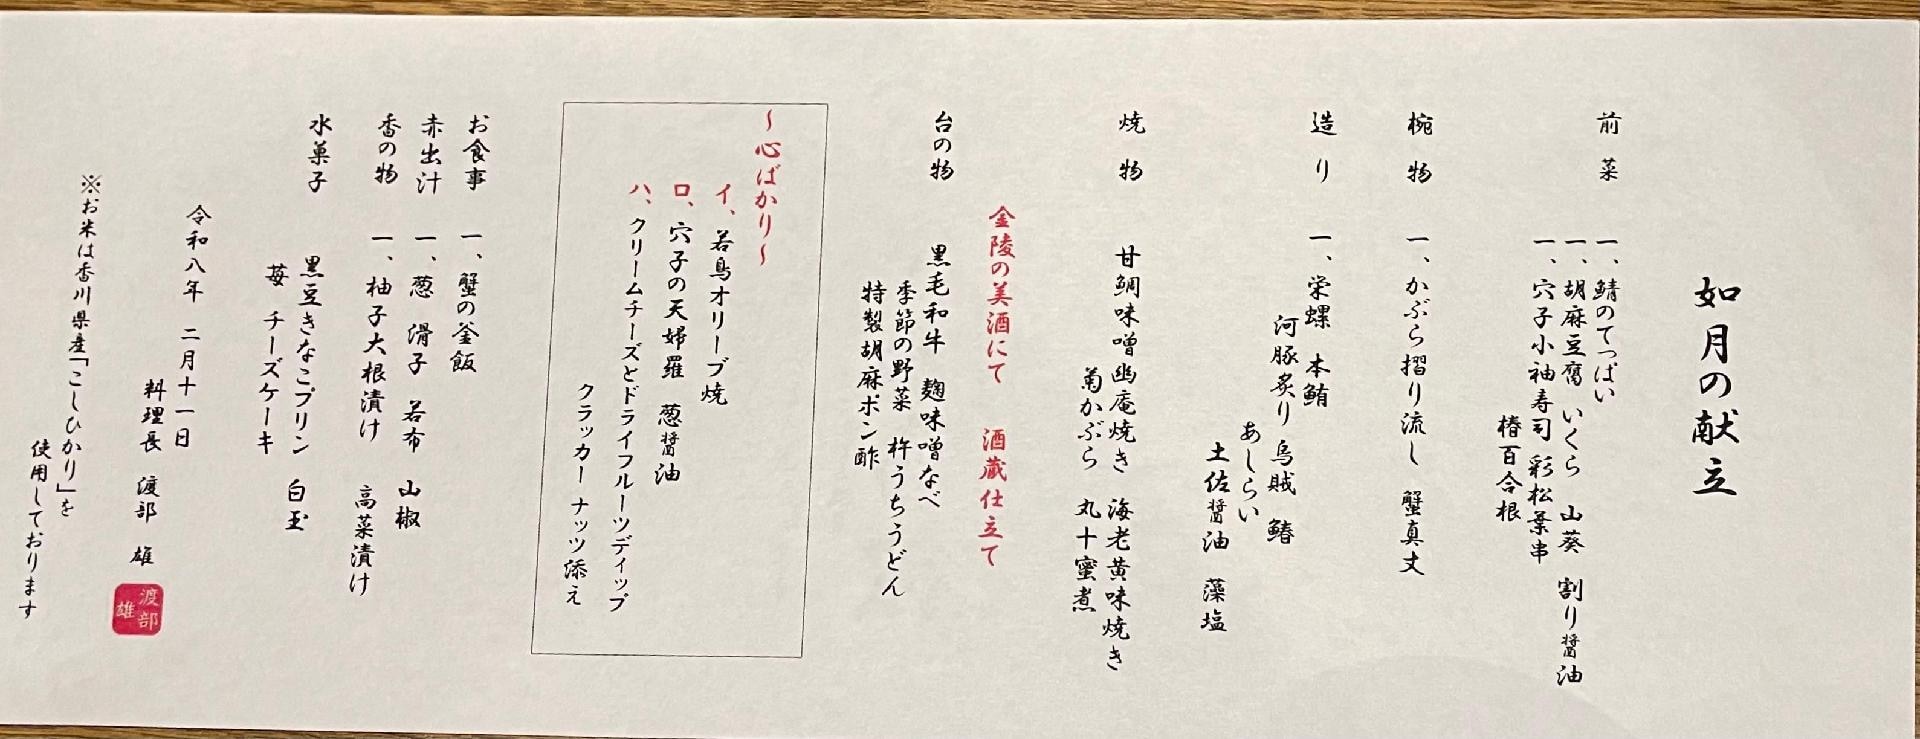 如月の献立
前菜
一、鯖のてっぱい
一、胡麻豆腐 いくら 山葵 割り醤油
一、穴子小袖寿司 彩松葉串
椿百合根
椀物
一、かぶら摺り流し 蟹真丈
造り
一、栄螺 本鮪
河豚炙り 烏賊 鰆
あしらい
土佐醤油 藻塩
焼物
甘鯛味噌幽庵焼き 海老黄味焼き
菊かぶら 丸十蜜煮
金陵の美酒にて 酒蔵仕立て
台の物
黒毛和牛 麹味噌なべ
季節の野菜 杵うちうどん
特製胡麻ポン酢
~心ばかり~
イ、若鳥オリーブ焼
ロ、穴子の天婦羅 葱醤油
ハ、クリームチーズとドライフルーツディップ
クラッカー ナッツ添え
お食事 一、蟹の釜飯
赤出汁 一、葱 滑子 若布 山椒
香の物 一、柚子大根漬け 高菜漬け
水菓子
黒豆きなこプリン 白玉
苺 チーズケーキ
令和八年 二月十一日
料理長 渡部 雄
渡部雄
※お米は香川県産「こしひかり」を
使用しております